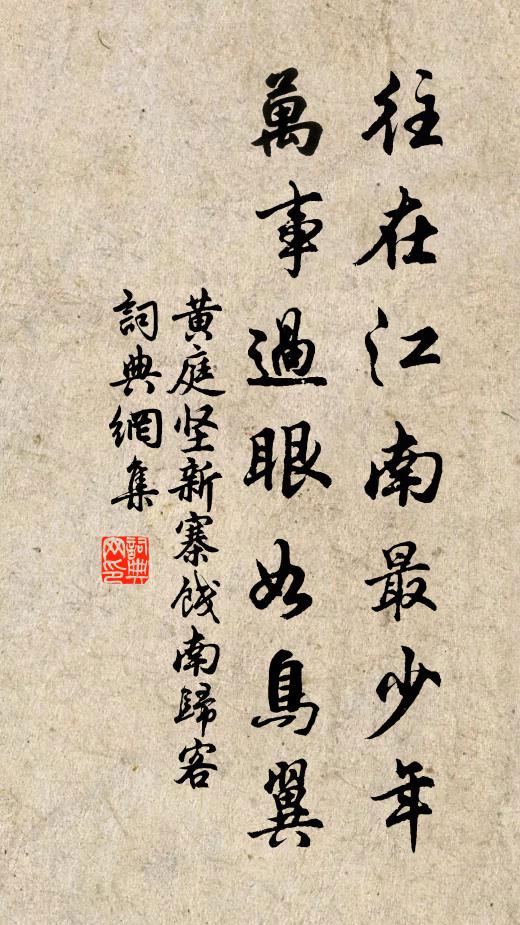 往在江南最少年
萬事過眼如鳥翼
黄庭坚新寨餞南歸客
詞典網集
詞典网印